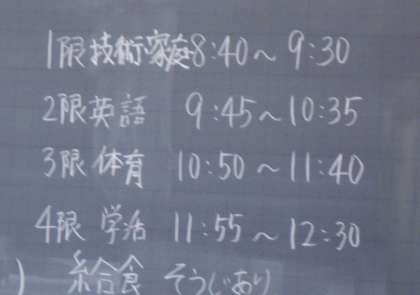 1限技術・家庭8:40～9:30
2限英語 9:45～10:35
3限 体育 10:50～11:40
4限 学活 11:55～12:30
) 給食 そうじあり